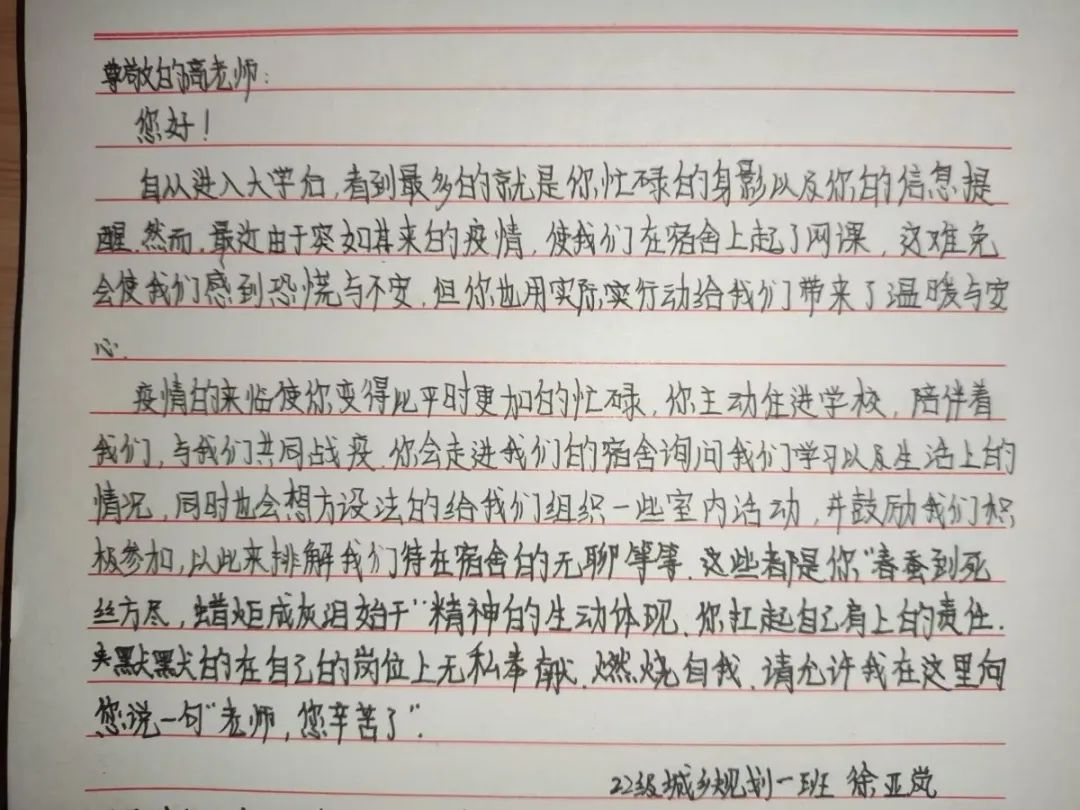 尊敬的高老师:
您好!
自从进入大学后,看到最多的就是你忙碌的身影以及你的信息提
醒.然而,最近由于突如其来的疫情,使我们在宿舍上起了网课,这难免
会使我们感到恐慌与不安,但你也用实际实行动给我们带来了温暖与安
心.
疫情的来临使你变得比平时更加的忙碌,你主动住进学校,陪伴着
我们,与我们共同战疫.你会走进我们的宿舍询问我们学习以及生活上的
情况,同时也会想方设法的给我们组织一些室内活动,并鼓励我们积
极参加,以此来排解我们待在宿舍的无聊等等.这些都是你“春蚕到死
丝方尽,蜡炬成灰泪始干”精神的生动体现.你扛起自己肩上的责任.
默默的在自己的岗位上无私奉献.燃烧自我.请允许我在这里向
您说一句“老师,您辛苦了”.
22级城乡规划一班 徐亚岚